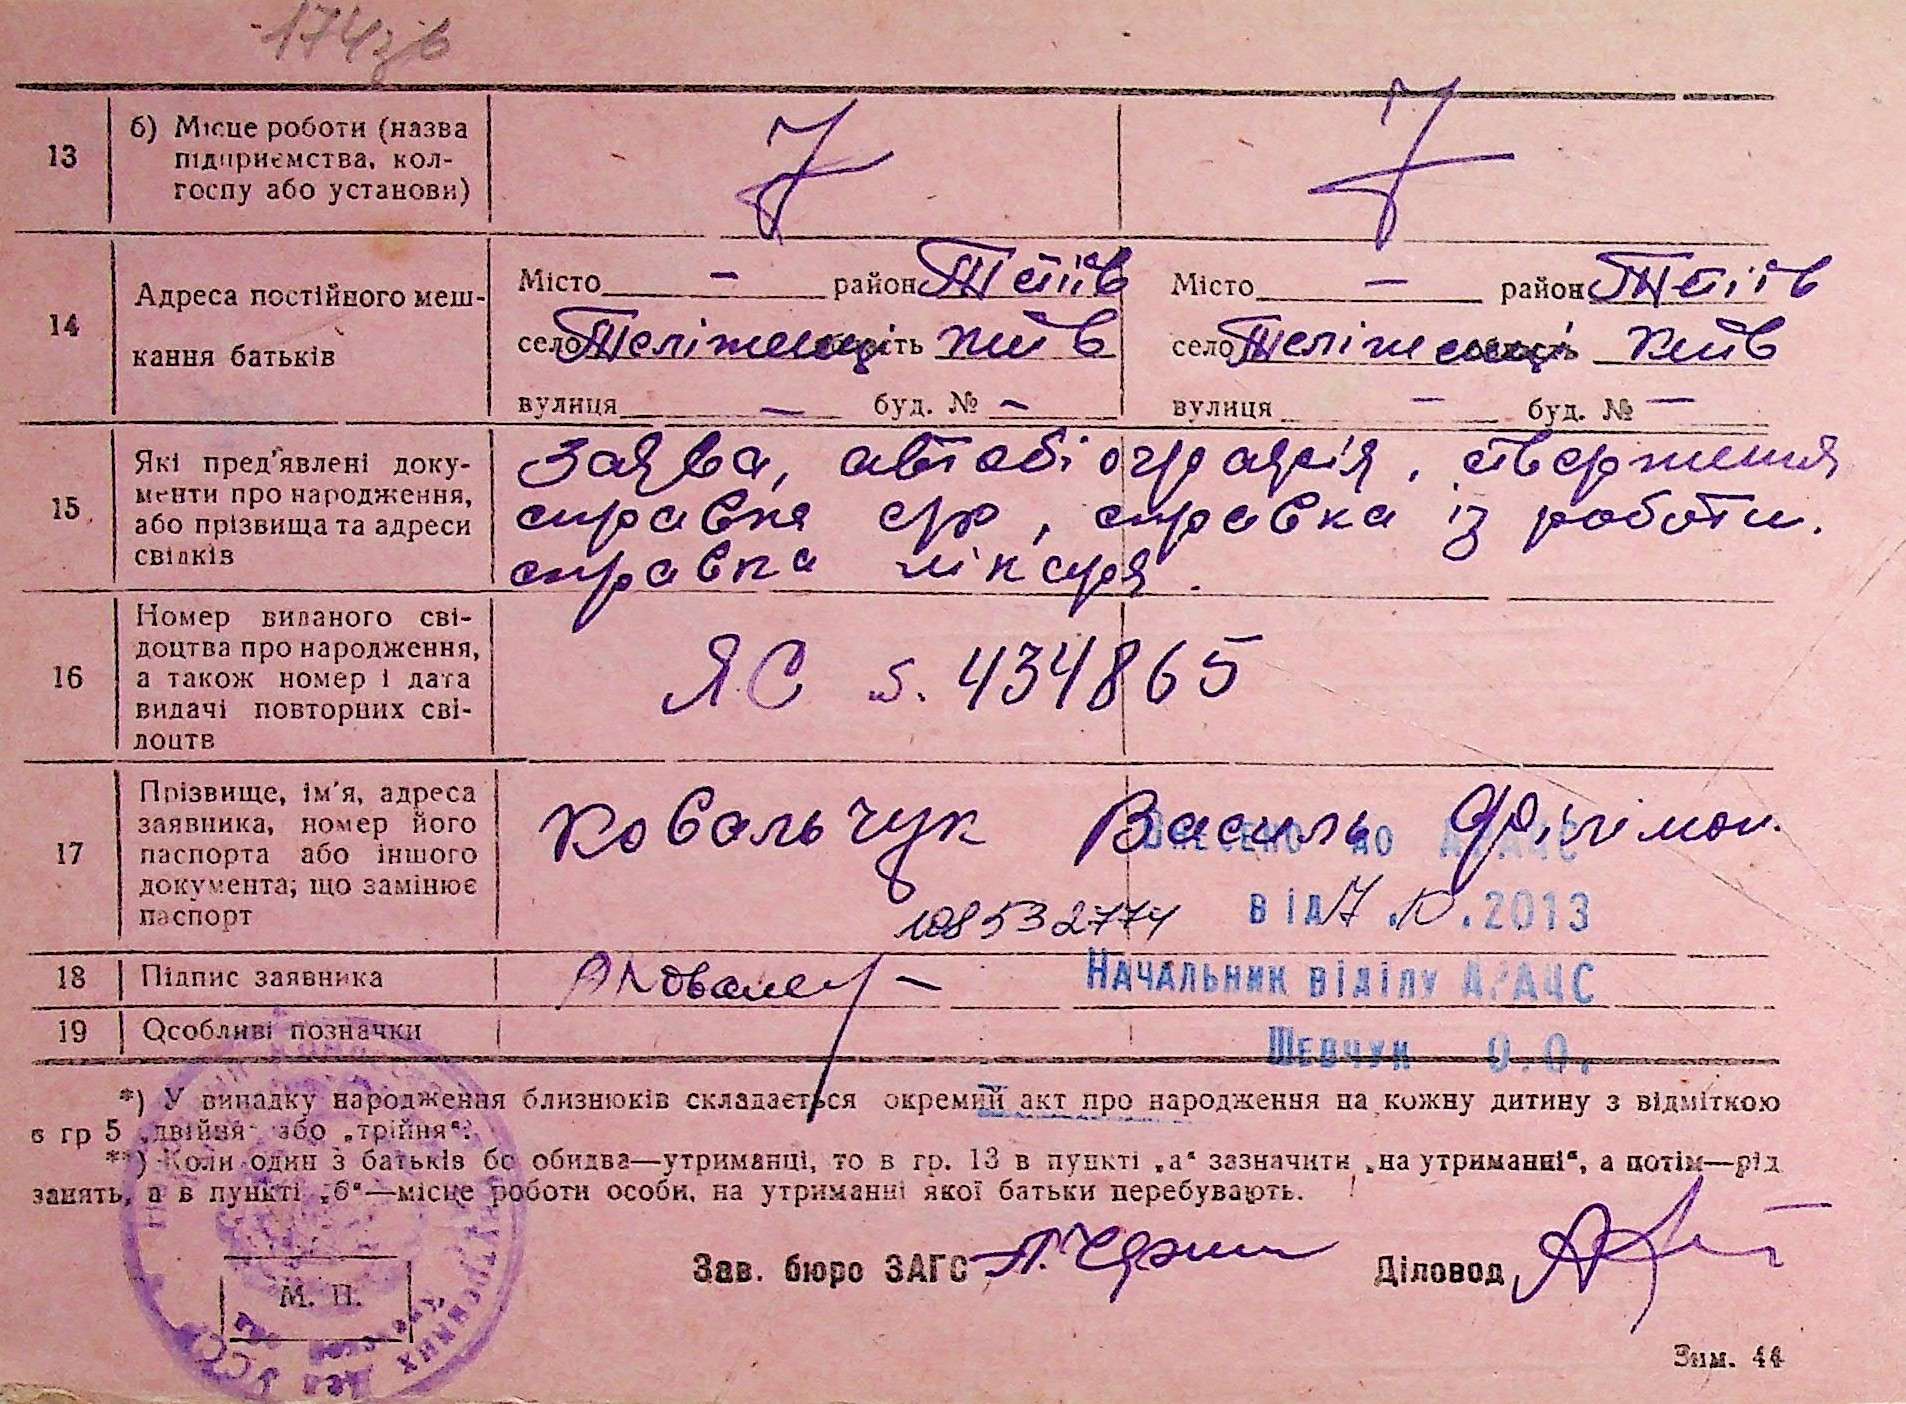 174зв
13 б) Місце роботи (назва
підприємства, кол-
госпу або установи)
14 Адреса постійного меш-
кання батьків
Місто — район Тетіїв Місто — район Тетіїв
село Теліженці область Київ село Теліженці область Київ
вулиця — буд. № — вулиця — буд. № —
15 Які пред'явлені доку-
менти про народження,
або прізвища та адреси
свідків
Заява, автобіографія, ствердження
справка с/р, справка із роботи.
справка лікаря.
16 Номер виданого сві-
доцтва про народження,
а також номер і дата
видачі повторних сві-
доцтв
ЯС s. 434865
17 Прізвище, ім'я, адреса
заявника, номер його
паспорта або іншого
документа; що замінює
паспорт
Ковальчук Василь Філімон.
108532774
Внесено до ДРАЦС
від 7.10.2013
Начальник відділу ДРАЦС
Шевчук О.О.
18 Підпис заявника
19 Особливі позначки
*) У випадку народження близнюків складається окремий акт про народження на кожну дитину з відміткою
в гр 5 „двійня“ або „трійня“.
**) Коли один з батьків бо обидва—утриманці, то в гр. 13 в пункті „а“ зазначити „на утриманні“, а потім—рід
занять, а в пункті „б“—місце роботи особи, на утриманні якої батьки перебувають.
Зав. бюро ЗАГС Діловод
М. П.
УССР
Зам. 44